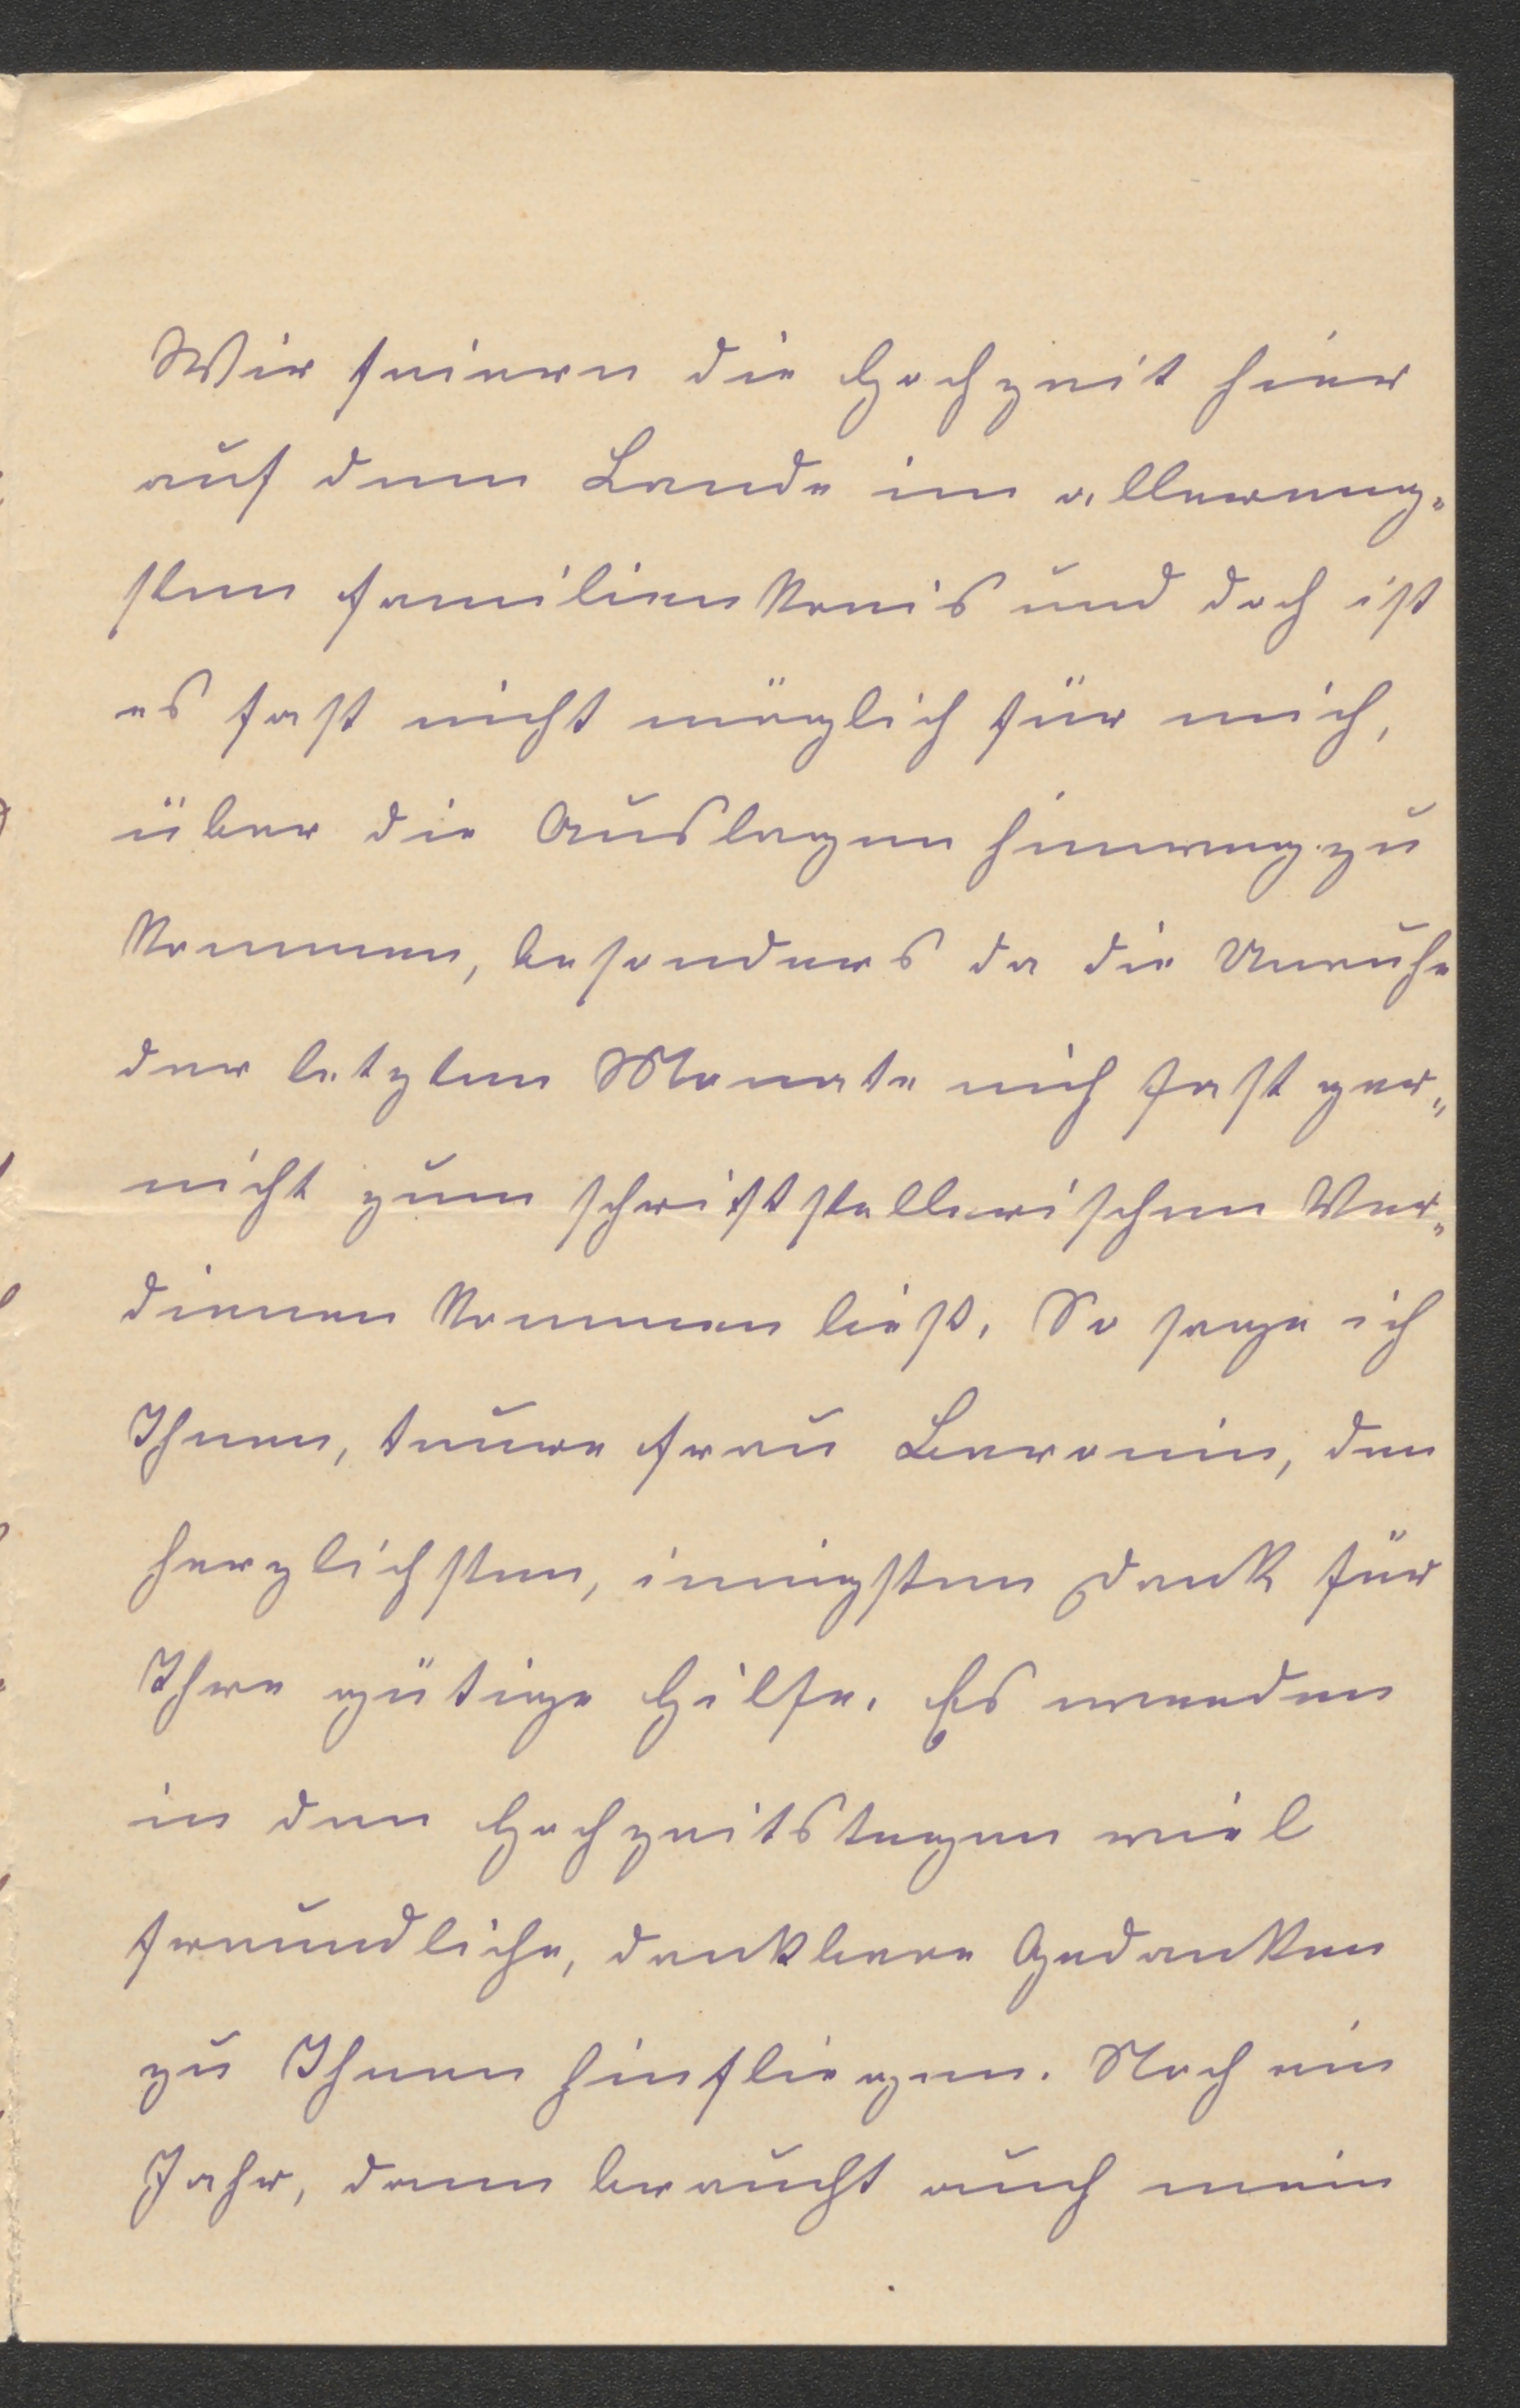 Wir feiern die Hochzeit hier
auf dem Lande im allereng-
sten Familienkreis und doch ist
es fast nicht möglich für mich,
über die Auslagen hinweg zu
kommen, besonders da die Unruhe
der letzten Monate mich fast gar-
nicht zum schriftstellerischen Ver-
dienen kommen ließ. So sage ich
Ihnen, teuere Frau Baronin, den
herzlichsten, innigsten Dank für
Ihre gütige Hilfe. Es werden
in den Hochzeitstagen viel
freundliche, dankbare Gedanken
zu Ihnen hinfliegen. Noch ein
Jahr, dann braucht auch mein